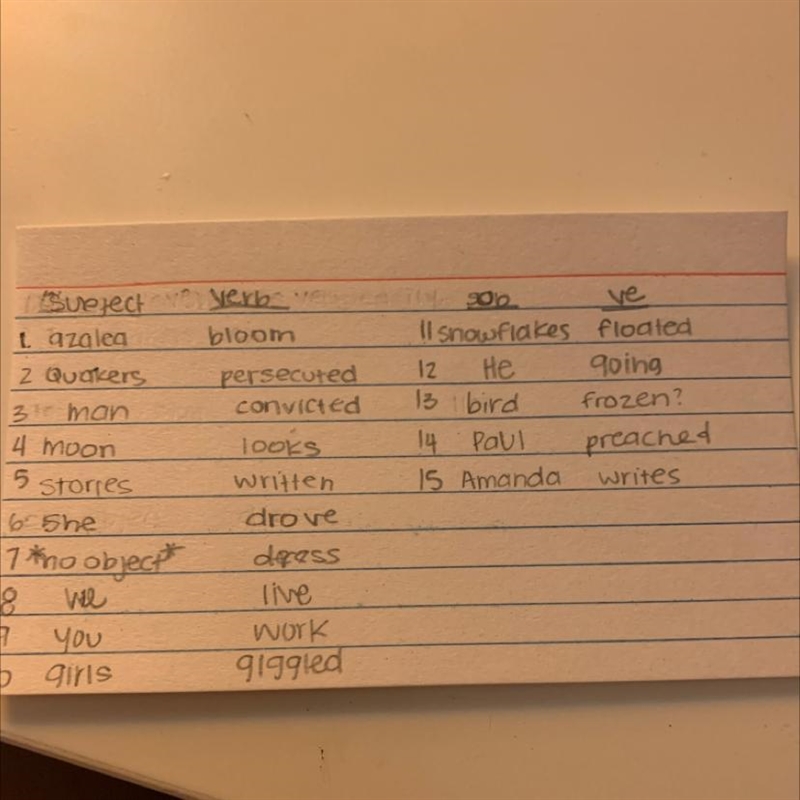 Subject verb sub ve
1. azalea bloom 11 snowflakes floated
2 Quakers persecuted 12 He going
3 man convicted 13 bird frozen?
4 moon looks 14 Paul preached
5 stories written 15 Amanda writes
6 She drove
7 *no object* dress
8 we live
9 you work
0 girls giggled